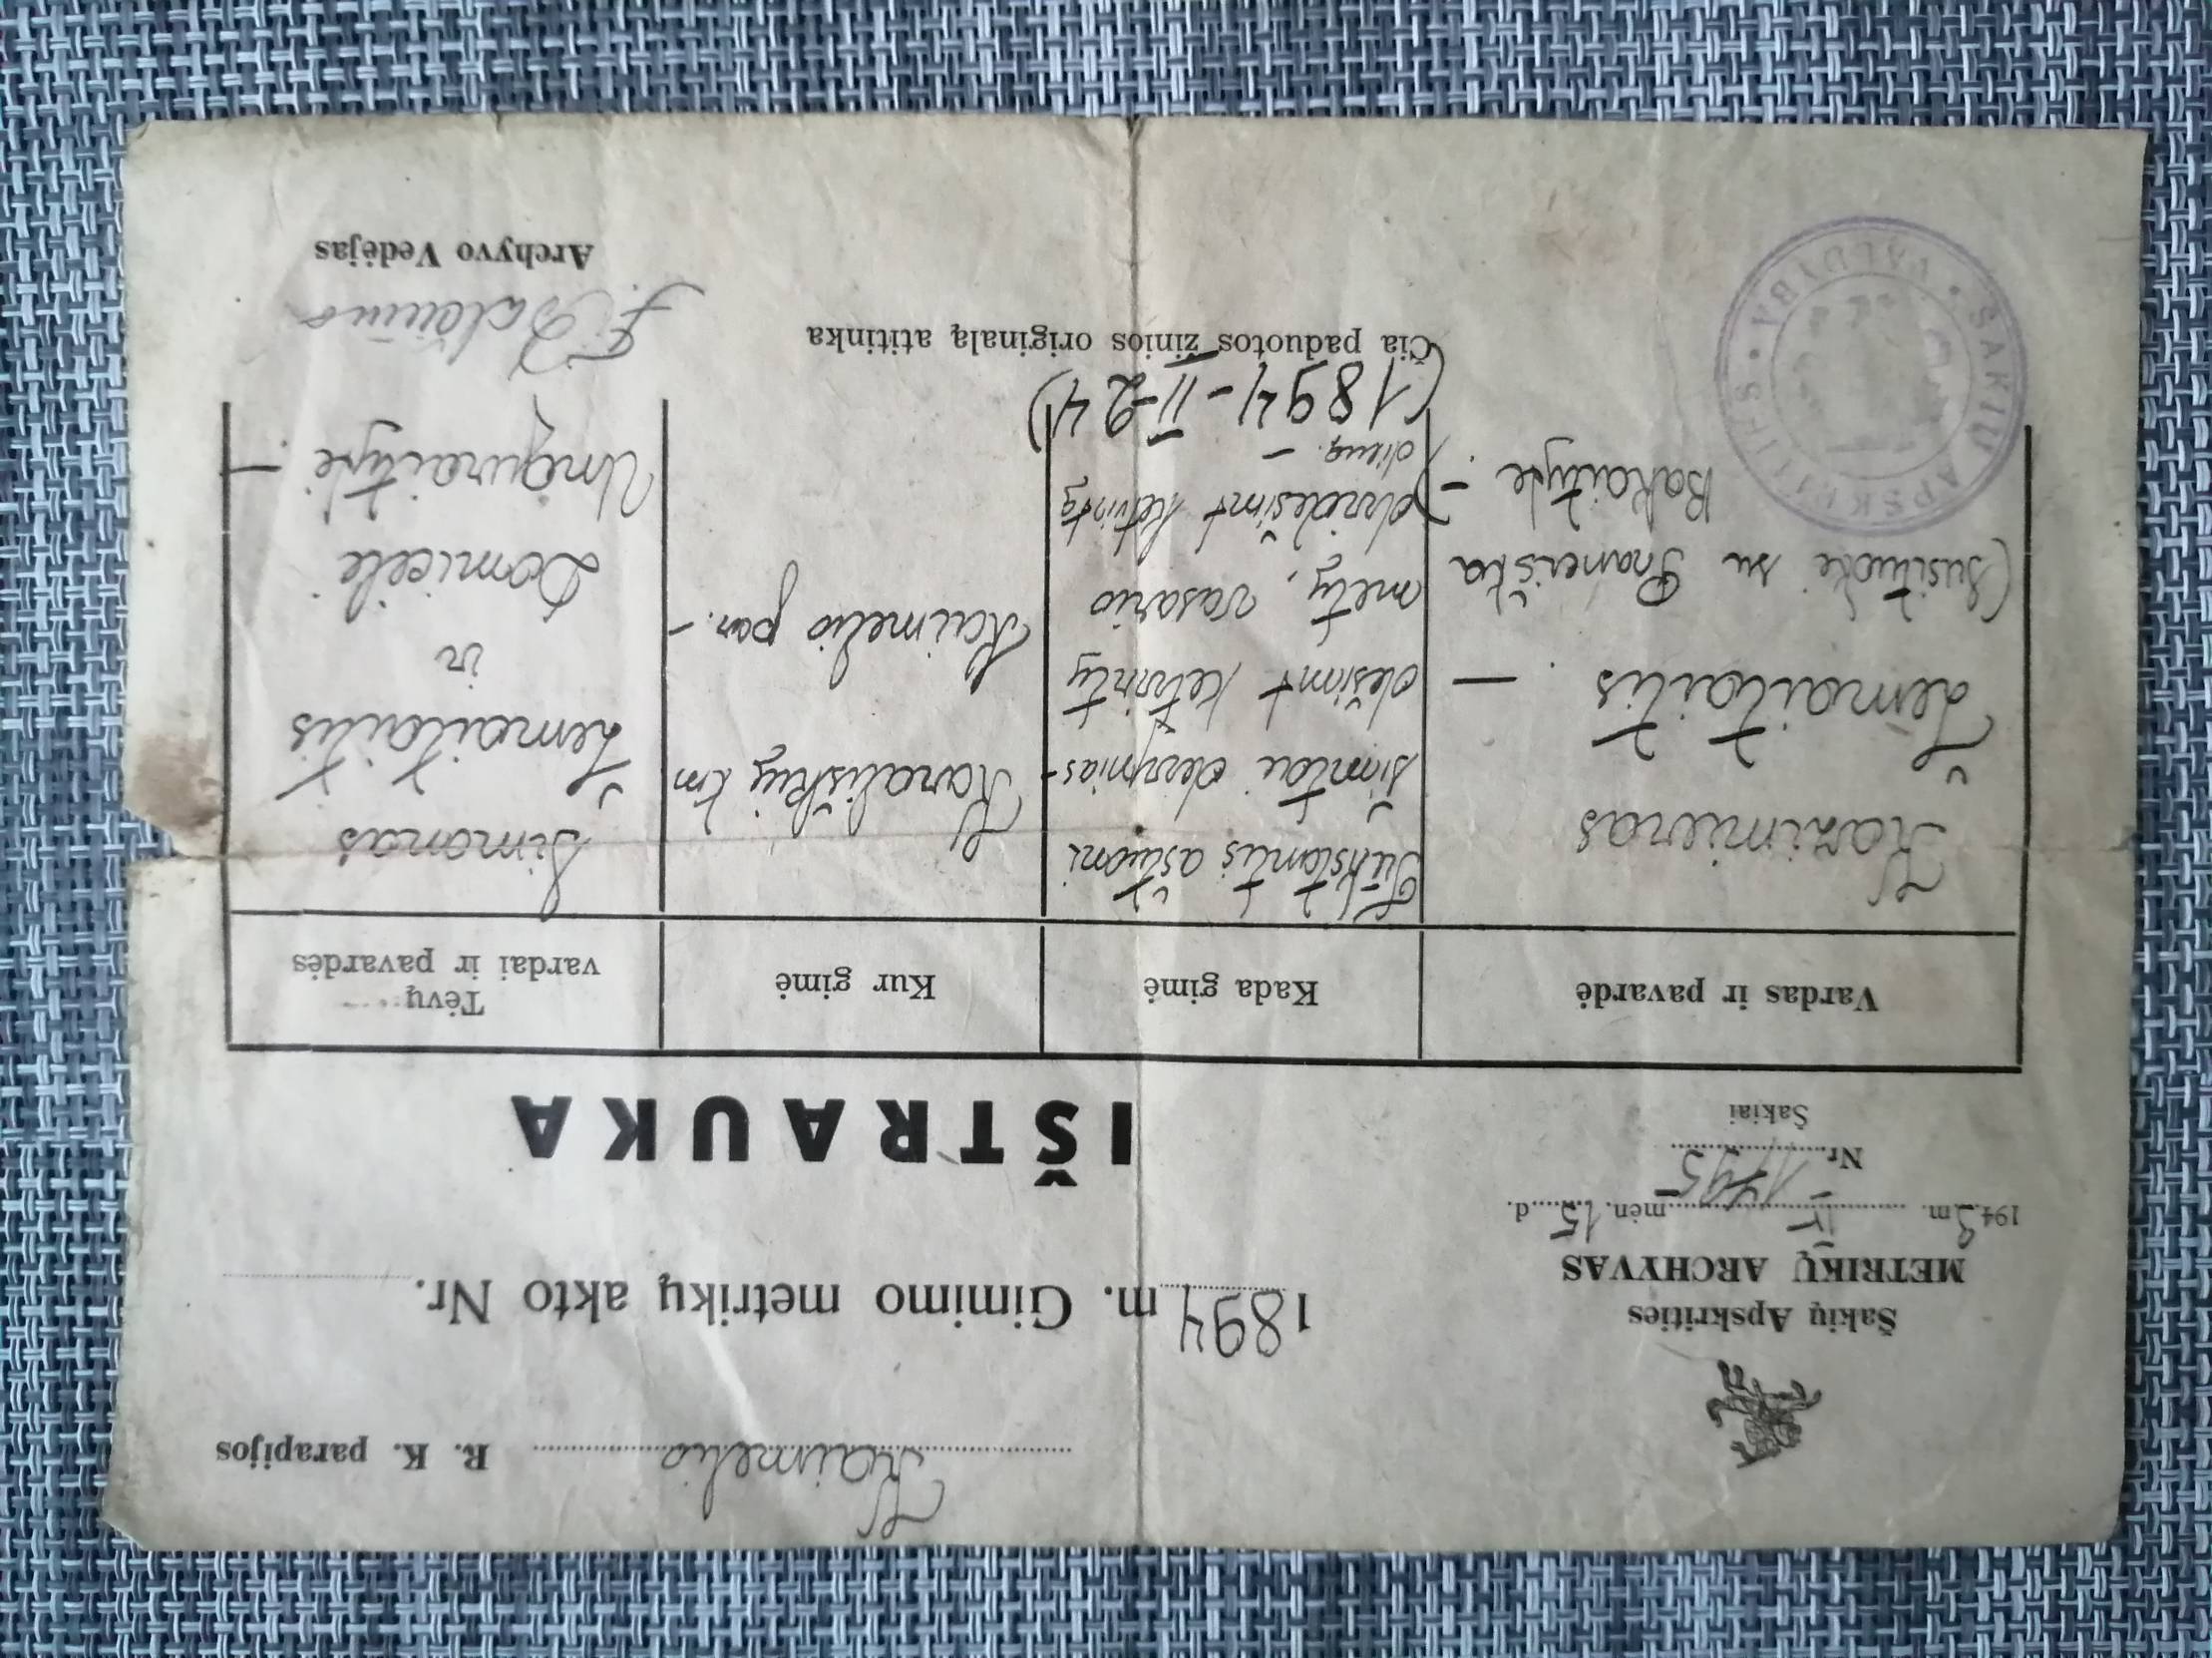 Kaimelio R. K. parapijos
Šakių Apskrities
METRIKŲ ARCHYVAS
194 m. II mėn. 15 d.
Nr. 1795
Šakiai
1894 m. Gimimo metrikų akto Nr.
IŠTRAUKA
Vardas ir pavardė
Kazimieras
Žemaitaitis —
(Susituokė su Pranciška
Bakaityte —).
Kada gimė
Tūkstantis aštuoni
šimtai devynias-
dešimt ketvirtų
metų, vasario
dvidešimt ketvirtą
dieną. —
(1894-II-24)
Kur gimė
Karališkių km
Kaimelio par. —
Tėvų
vardai ir pavardės
Simonas
Žemaitaitis
ir
Domicėlė
Unguraitytė. —
Čia paduotos žinios originalą atitinka
Archyvo Vedėjas
ŠAKIŲ APSKRITIES • VALDYBA •